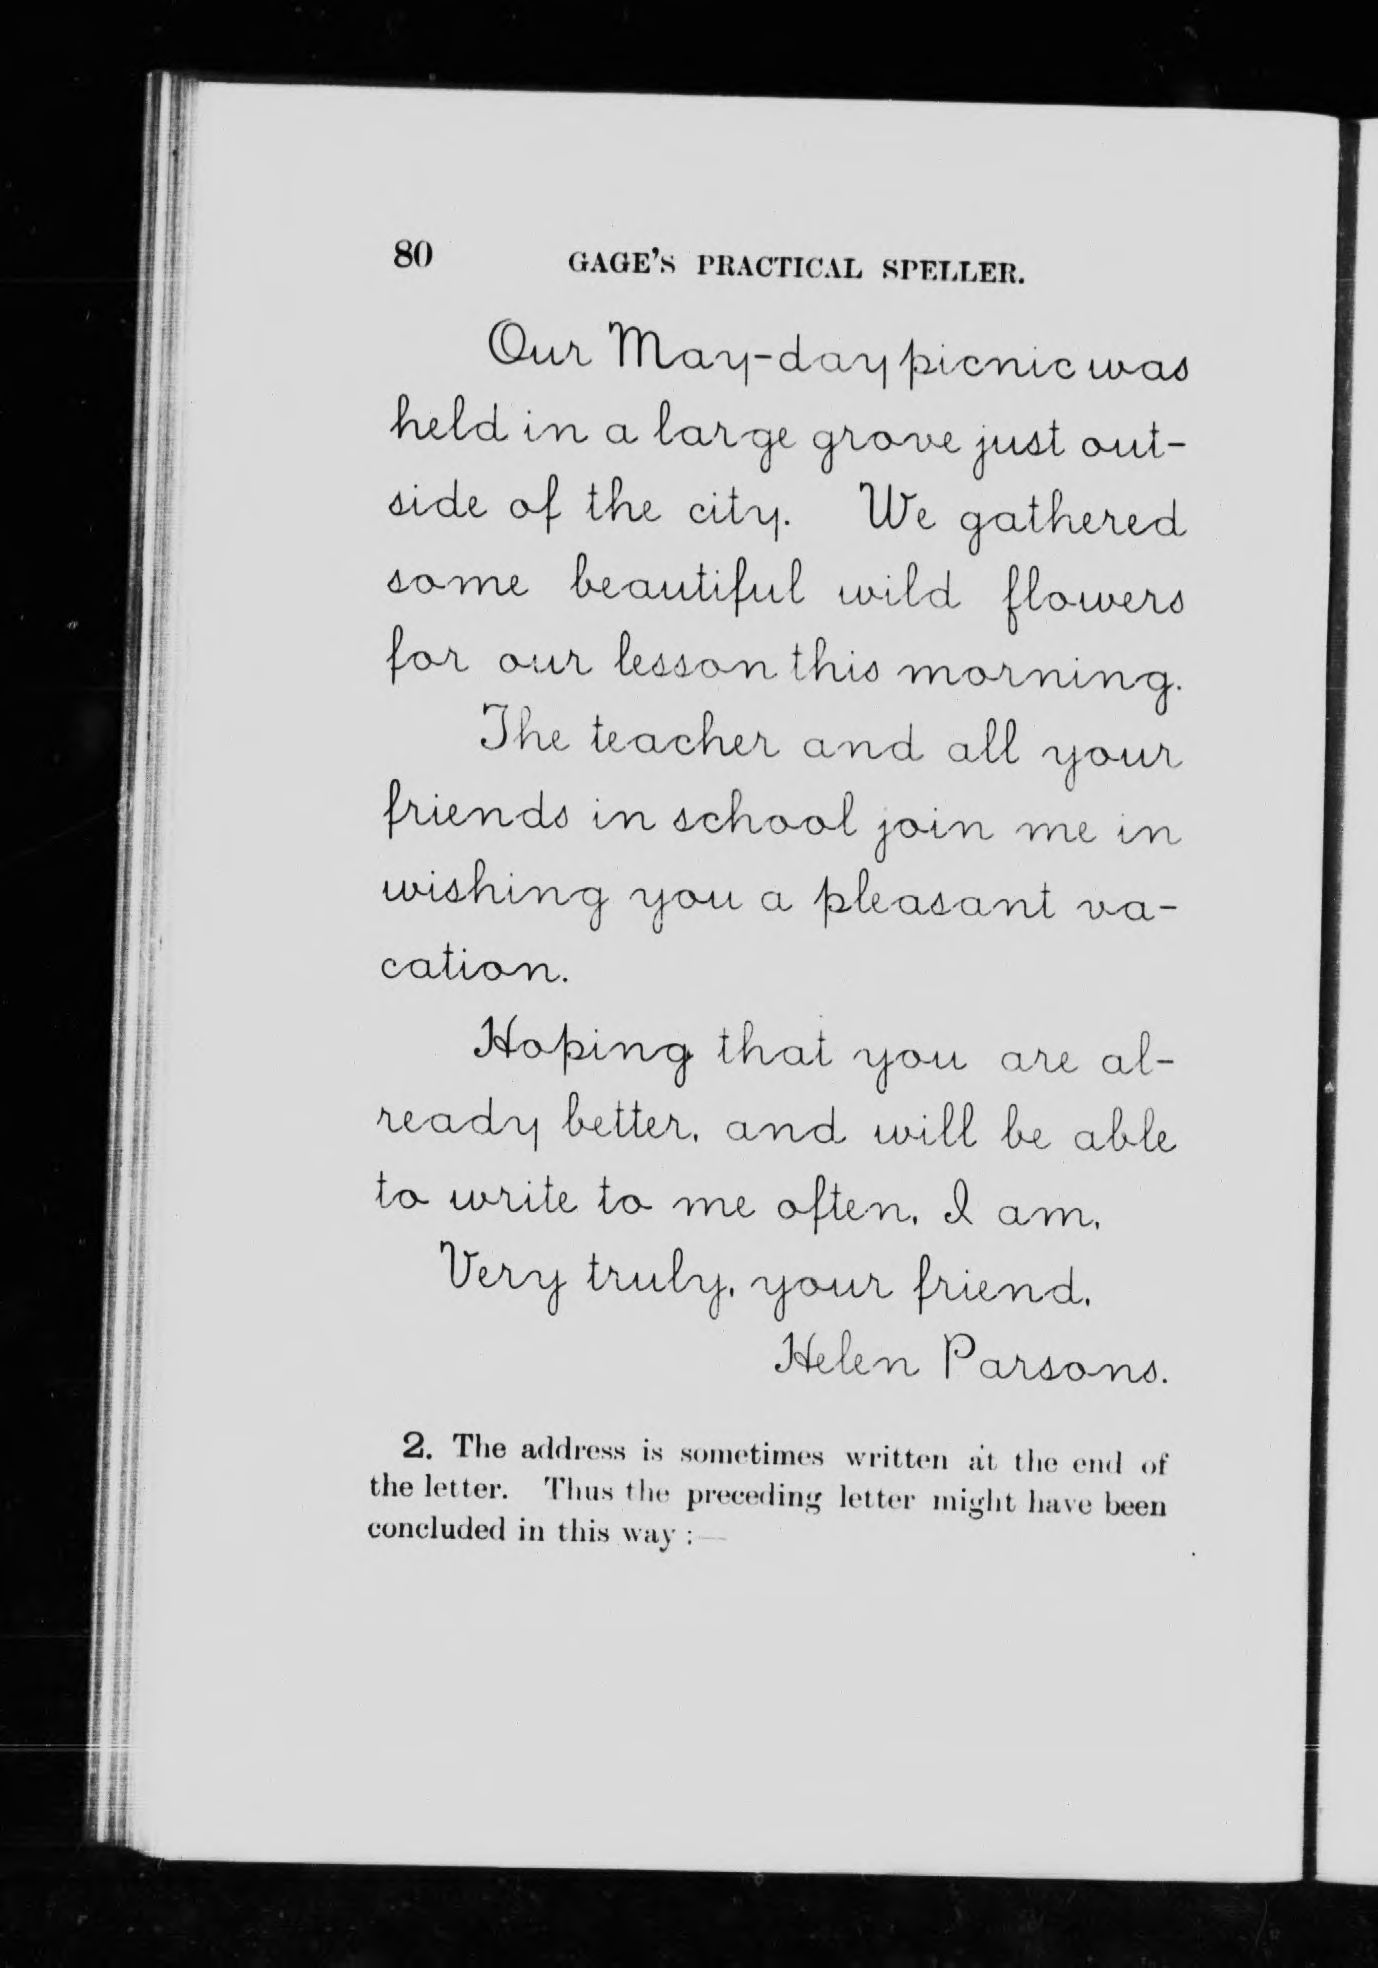 80 GAGE'S PRACTICAL SPELLER.
Our May-day picnic was
held in a large grove just out-
side of the city. We gathered
some beautiful wild flowers
for our lesson this morning.
The teacher and all your
friends in school join me in
wishing you a pleasant va-
cation.
Hoping that you are al-
ready better, and will be able
to write to me often, I am,
Very truly, your friend,
Helen Parsons.
2. The address is sometimes written at the end of
the letter. Thus the preceding letter might have been
concluded in this way :—